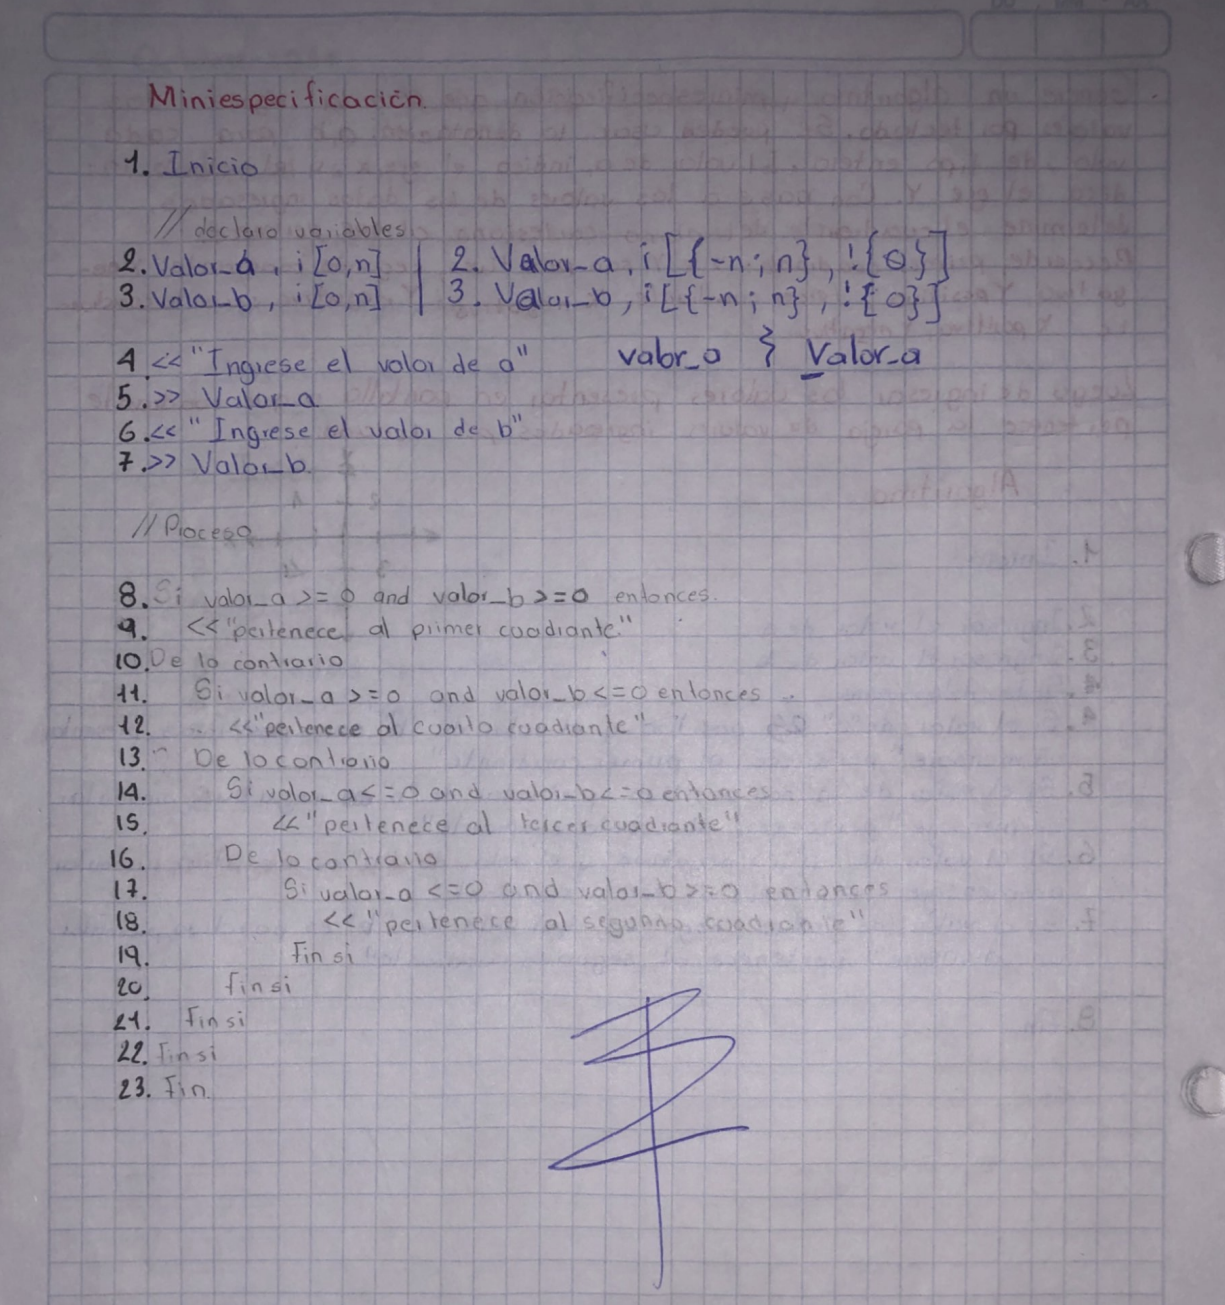 Miniespecificación.
1. Inicio
// declaro variables
2. Valor_a, i [0,n] | 2. Valor_a, i [{-n; n}, !{0}]
3. Valor_b, i[0,n] | 3. Valor_b, i[{-n; n}, !{0}]
4 << "Ingrese el valor de a" valor_a } Valor_a
5. >> Valor_a
6. << "Ingrese el valor de b"
7. >> Valor_b.
// Proceso
8. Si valor_a >= 0 and valor_b >= 0 entonces.
9. << "pertenece al primer cuadrante"
10. De lo contrario
11. Si valor_a >= 0 and valor_b <= 0 entonces
12. << "pertenece al cuarto cuadrante"
13. De lo contrario
14. Si valor_a <= 0 and valor_b <= 0 entonces
15. << "pertenece al tercer cuadrante"
16. De lo contrario
17. Si valor_a <= 0 and valor_b >= 0 entonces
18. << "pertenece al segundo cuadrante"
19. Fin si
20. finsi
21. Finsi
22. Finsi
23. Fin.